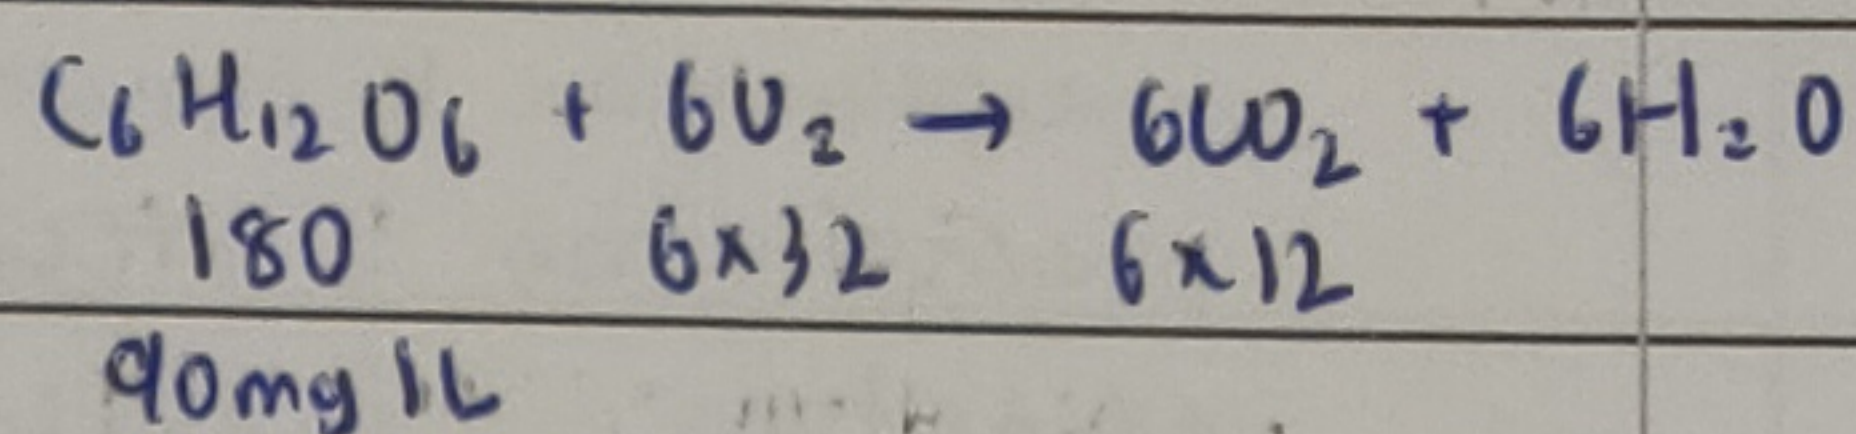 C₆H₁₂O₆ + 6O₂ → 6CO₂ + 6H₂O
180 6×32 6×12
90mg/L